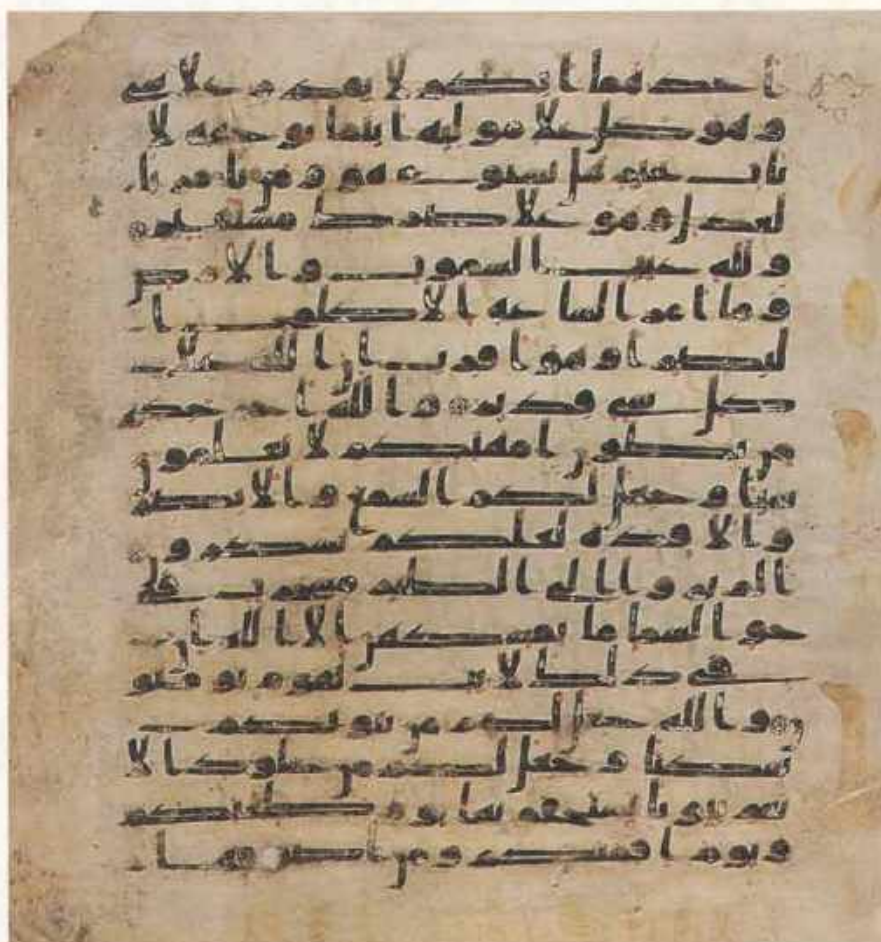 احدهما ابكم لا يقدر على شى
وهو كل على موليه اينما يوجهه لا
يات بخير هل يستوى هو ومن يامر با
لعدل وهو على صرط مستقيم
ولله غيب السموت والارض
وما امر الساعة الا كلمح ا
لبصر او هو اقرب ان الله على
كل شى قدير والله اخرجكم
من بطون امهتكم لا تعلمون
شيا وجعل لكم السمع والابصر
والافدة لعلكم تشكرون
الم يروا الى الطير مسخرت فى
جو السما ما يمسكهن الا الله ان
فى ذلك لايت لقوم يومنو
ن والله جعل لكم من بيوتكم
سكنا وجعل لكم من جلود الا
نعم بيوتا تستخفونها يوم ظعنكم
ويوم اقمتكم ومن اصوفها